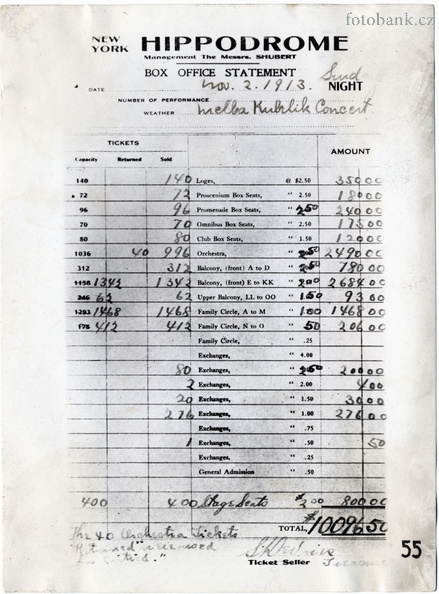 fotobank.cz
NEW YORK HIPPODROME
Management The Messrs. SHUBERT
BOX OFFICE STATEMENT
DATE Nov. 2. 1913. NIGHT
NUMBER OF PERFORMANCE
WEATHER Melba Kubelik Concert
TICKETS AMOUNT
Capacity Returned Sold
140 140 Loges, @ $2.50 350 00
72 72 Proscenium Box Seats, " 2.50 180 00
96 96 Promenade Box Seats, " 2.50 240 00
70 70 Omnibus Box Seats, " 2.50 175 00
80 80 Club Box Seats, " 1.50 120 00
1036 40 996 Orchestra, " 2.50 2490 00
312 312 Balcony, (front) A to D " 2.50 780 00
1158 1342 1342 Balcony, (front) E to KK " 2.00 2684 00
62 62 Upper Balcony, LL to OO " 1.50 93 00
1293 1468 1468 Family Circle, A to M " 1.00 1468 00
178 412 412 Family Circle, N to O " .50 206 00
Family Circle, " .25
Exchanges, " 4.00
80 Exchanges, " 2.50 200 00
2 Exchanges, " 2.00 4 00
20 Exchanges, " 1.50 30 00
276 Exchanges, " 1.00 276 00
Exchanges, " .75
1 Exchanges, " .50 50
Exchanges, " .25
General Admission " .50
400 400 Stage Seats $2.00 800 00
TOTAL, $10096 50
The 40 Orchestra Tickets
"Returned"
Ticket Seller
55